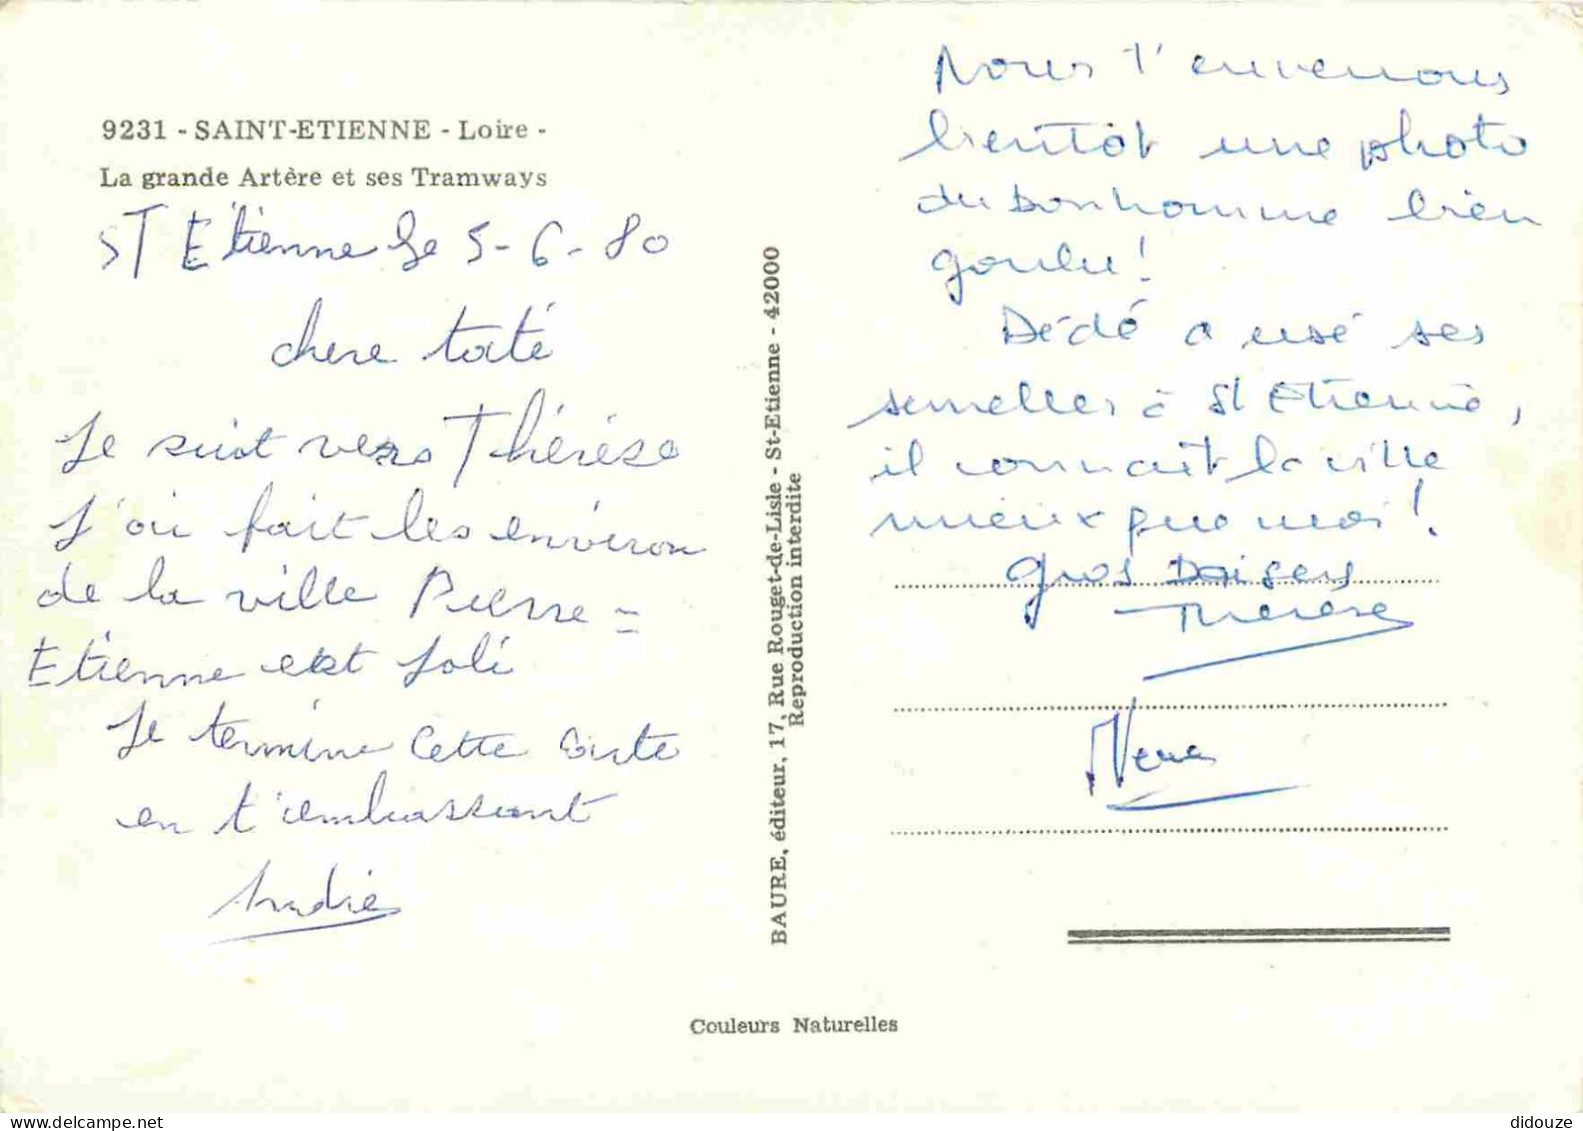 9231 - SAINT-ETIENNE - Loire -
La grande Artère et ses Tramways
ST Etienne le 5-6-80
chere tate
Je suist vers Thérése
J'ai fait les environ
de la ville
Etienne est Joli
Je termine cette carte
en t'embrassant
André
BAURE, éditeur, 17, Rue Rouget-de-Lisle - St-Etienne - 42000
Reproduction interdite
Nous t'enverrons
bientôt une photo
du bonhomme bien
goulu!
Dédé a usé ses
semelles à St Etienne,
il connait la ville
mieux que moi!
gros Baisers
Therèse
Couleurs Naturelles
didouze